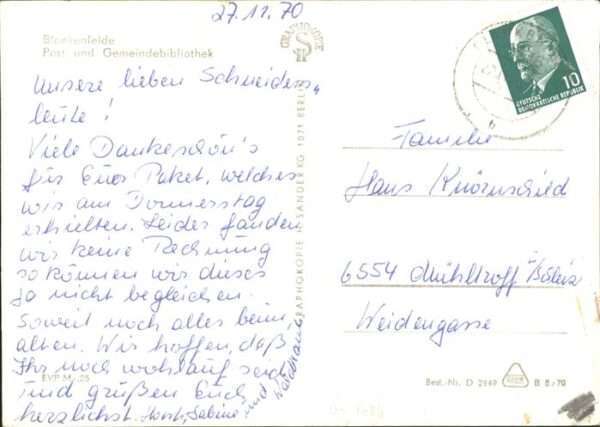 27.11.70
Blankenfelde
Post und Gemeindebibliothek
Unsere lieben Schneiders,,
leute!
Viele Dankeschön's
für Euer Paket, welches
wir am Donnerstag
erhielten. Leider fanden
wir keine Rechnung
so können wir dieses
ja nicht begleichen.
Soweit noch alles beim
alten. Wir hoffen, daß
Ihr noch wohlauf seid
und grüßen Euch
herzlichst Horst, Sabine und
EVP M -,25
GRAPHOKOPIE H. SANDER KG 1071 BERLIN
GRAPHOKOPIE
10
DEUTSCHE
DEMOKRATISCHE REPUBLIK
Familie
Hans
6554 Mühltroff
Weidengasse
Best.-Nr. D 2949
B 8/70